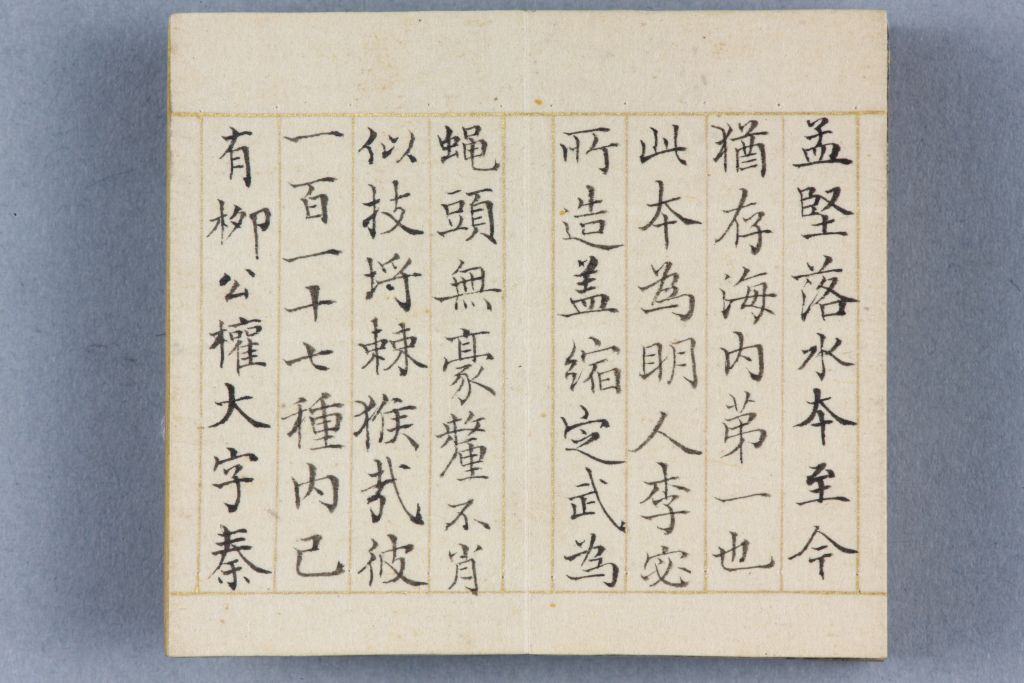 孟堅落水本至今
猶存海内苐一也
此本為明人李宓
所造盖縮定武為
蝇頭無豪釐不肖
似技埒棘猴㢤彼
一百一十七種内已
有栁公權大字秦